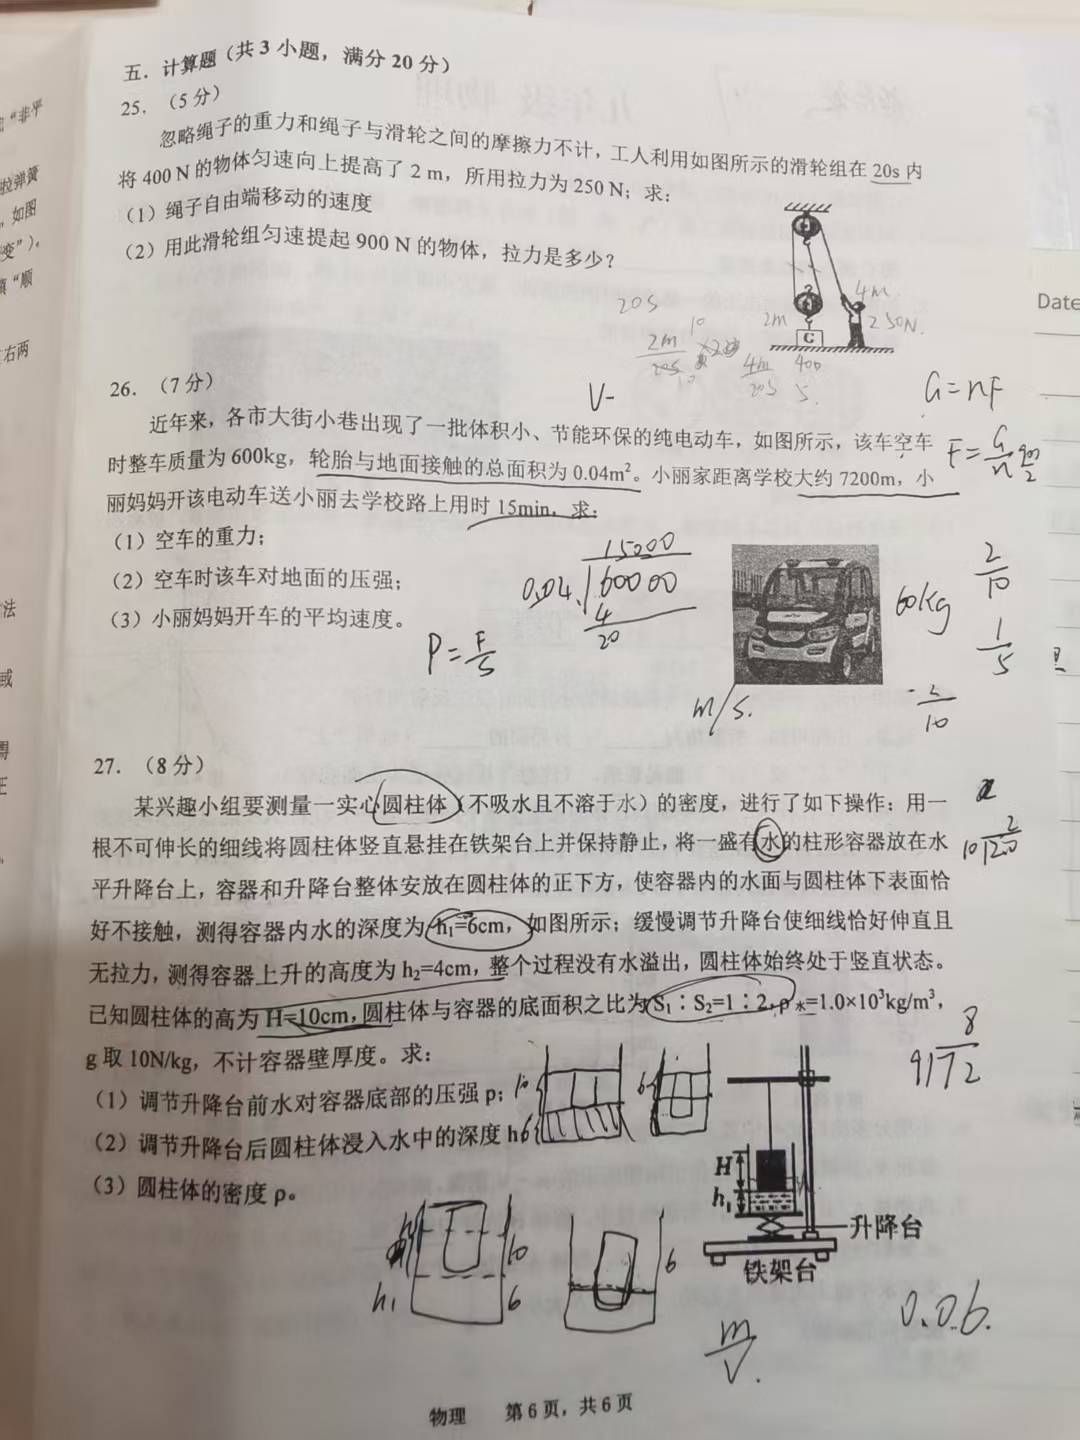 五．计算题（共3小题，满分20分）
25．（5分）
忽略绳子的重力和绳子与滑轮之间的摩擦力不计，工人利用如图所示的滑轮组在20s内
将400N的物体匀速向上提高了2m，所用拉力为250N；求：
（1）绳子自由端移动的速度
（2）用此滑轮组匀速提起900N的物体，拉力是多少？
20s
2m
20s
10
4m
250N.
2m
C
4m
20s
400
5
26．（7分）
V-
G=nF
近年来，各市大街小巷出现了一批体积小、节能环保的纯电动车，如图所示，该车空车
时整车质量为600kg，轮胎与地面接触的总面积为0.04m²。小丽家距离学校大约7200m，小
丽妈妈开该电动车送小丽去学校路上用时15min，求：
F=G/n
（1）空车的重力；
（2）空车时该车对地面的压强；
（3）小丽妈妈开车的平均速度。
15000
0.04.
60000
4
20
P=F/S
60kg
2/10
1/5
m/s.
10
27．（8分）
某兴趣小组要测量一实心圆柱体（不吸水且不溶于水）的密度，进行了如下操作：用一
根不可伸长的细线将圆柱体竖直悬挂在铁架台上并保持静止，将一盛有水的柱形容器放在水
平升降台上，容器和升降台整体安放在圆柱体的正下方，使容器内的水面与圆柱体下表面恰
好不接触，测得容器内水的深度为h₁=6cm，如图所示；缓慢调节升降台使细线恰好伸直且
无拉力，测得容器上升的高度为h₂=4cm，整个过程没有水溢出，圆柱体始终处于竖直状态。
已知圆柱体的高为H=10cm，圆柱体与容器的底面积之比为S₁：S₂=1：2，ρ水=1.0×10³kg/m³，
g取10N/kg，不计容器壁厚度。求：
（1）调节升降台前水对容器底部的压强p；
（2）调节升降台后圆柱体浸入水中的深度h
（3）圆柱体的密度ρ。
8
9 72
10
6
6
H
h₁
升降台
铁架台
10
h₁
6
6
m/V.
0.06.
物理 第6页，共6页
Date